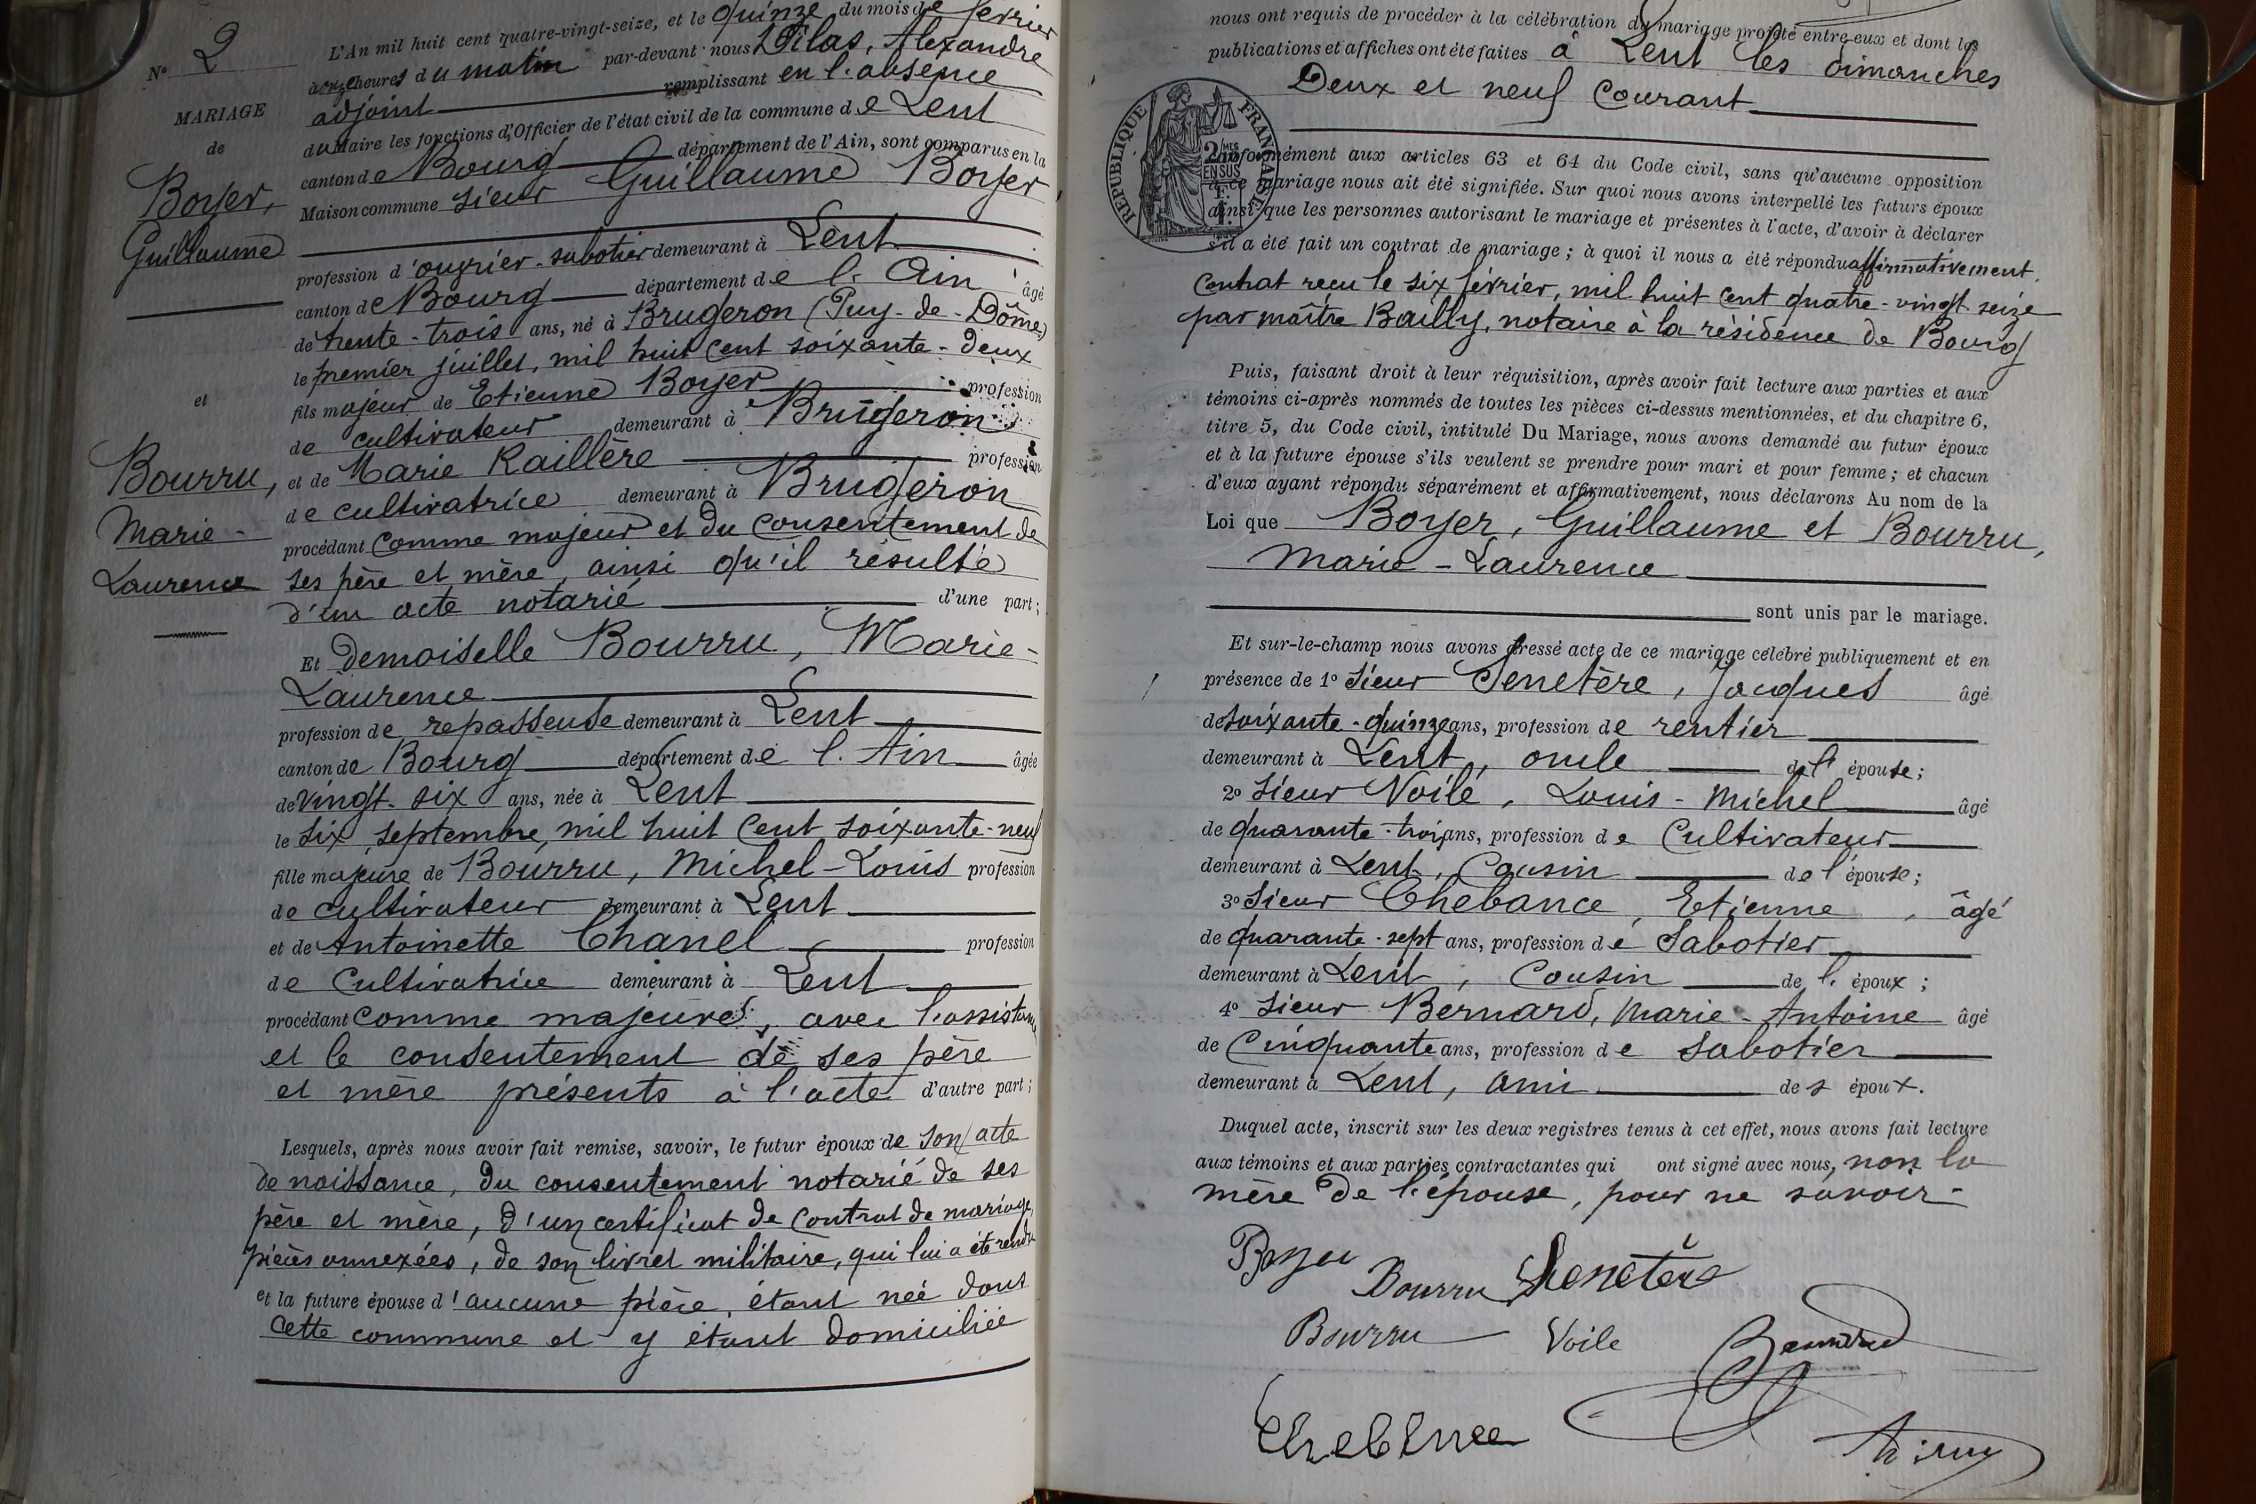 N° 2
MARIAGE
de
Boyer,
Guillaume
et
Bourru,
Marie-
Laurence
L'An mil huit cent quatre-vingt-seize, et le quinze du mois de février
à onze heures du matin par-devant nous Alexandre
adjoint remplissant en l'absence
du Maire les fonctions d'Officier de l'état civil de la commune de Lent
canton de Bourg département de l'Ain, sont comparus en la
Maison commune sieur Guillaume Boyer
profession d'ouvrier-sabotier demeurant à Lent
canton de Bourg département de l'Ain âgé
de trente-trois ans, né à Brugeron (Puy-de-Dôme)
le premier juillet, mil huit cent soixante-deux
fils majeur de Etienne Boyer profession
de cultivateur demeurant à Brugeron
et de Marie Raillère profession
de cultivatrice demeurant à Brugeron
procédant comme majeur et du consentement de
ses père et mère, ainsi qu'il résulte
d'un acte notarié d'une part;
Et demoiselle Bourru, Marie-
Laurence
profession de repasseuse demeurant à Lent
canton de Bourg département de l'Ain âgée
de vingt-six ans, née à Lent
le six septembre, mil huit cent soixante-neuf
fille majeure de Bourru, Michel-Louis profession
de cultivateur demeurant à Lent
et de Antoinette Chanel profession
de cultivatrice demeurant à Lent
procédant comme majeure, avec l'assistance
et le consentement de ses père
et mère présents à l'acte d'autre part;
Lesquels, après nous avoir fait remise, savoir, le futur époux de son acte
de naissance, du consentement notarié de ses
père et mère, d'un certificat de contrat de mariage,
pièces annexées, de son livret militaire, qui lui a été rendu
et la future épouse d'aucune pièce, étant née dans
cette commune et y étant domiciliée
nous ont requis de procéder à la célébration du mariage projeté entre eux et dont les
publications et affiches ont été faites à Lent les dimanches
Deux et neuf courant
RÉPUBLIQUE FRANÇAISE
2/10MES
EN SUS
Conformément aux articles 63 et 64 du Code civil, sans qu'aucune opposition
à ce mariage nous ait été signifiée. Sur quoi nous avons interpellé les futurs époux
ainsi que les personnes autorisant le mariage et présentes à l'acte, d'avoir à déclarer
s'il a été fait un contrat de mariage; à quoi il nous a été répondu affirmativement,
contrat reçu le six février, mil huit cent quatre-vingt-seize
par maître Bailly, notaire à la résidence de Bourg
Puis, faisant droit à leur réquisition, après avoir fait lecture aux parties et aux
témoins ci-après nommés de toutes les pièces ci-dessus mentionnées, et du chapitre 6,
titre 5, du Code civil, intitulé Du Mariage, nous avons demandé au futur époux
et à la future épouse s'ils veulent se prendre pour mari et pour femme; et chacun
d'eux ayant répondu séparément et affirmativement, nous déclarons Au nom de la
Loi que Boyer, Guillaume et Bourru,
Marie-Laurence
sont unis par le mariage.
Et sur-le-champ nous avons dressé acte de ce mariage célébré publiquement et en
présence de 1° sieur Senetère, Jacques âgé
de soixante-quinze ans, profession de rentier
demeurant à Lent, oncle de l'épouse;
2° sieur Voilé, Louis-Michel âgé
de quarante-trois ans, profession de cultivateur
demeurant à Lent, cousin de l'épouse;
3° sieur Chebance, Etienne, âgé
de quarante-sept ans, profession de sabotier
demeurant à Lent, cousin de l'époux;
4° sieur Bernard, Marie-Antoine âgé
de cinquante ans, profession de sabotier
demeurant à Lent, ami des époux.
Duquel acte, inscrit sur les deux registres tenus à cet effet, nous avons fait lecture
aux témoins et aux parties contractantes qui ont signé avec nous, non la
mère de l'épouse, pour ne savoir-
Boyer
Bourru Senetère
Bourru Voile Bernard
Chebance